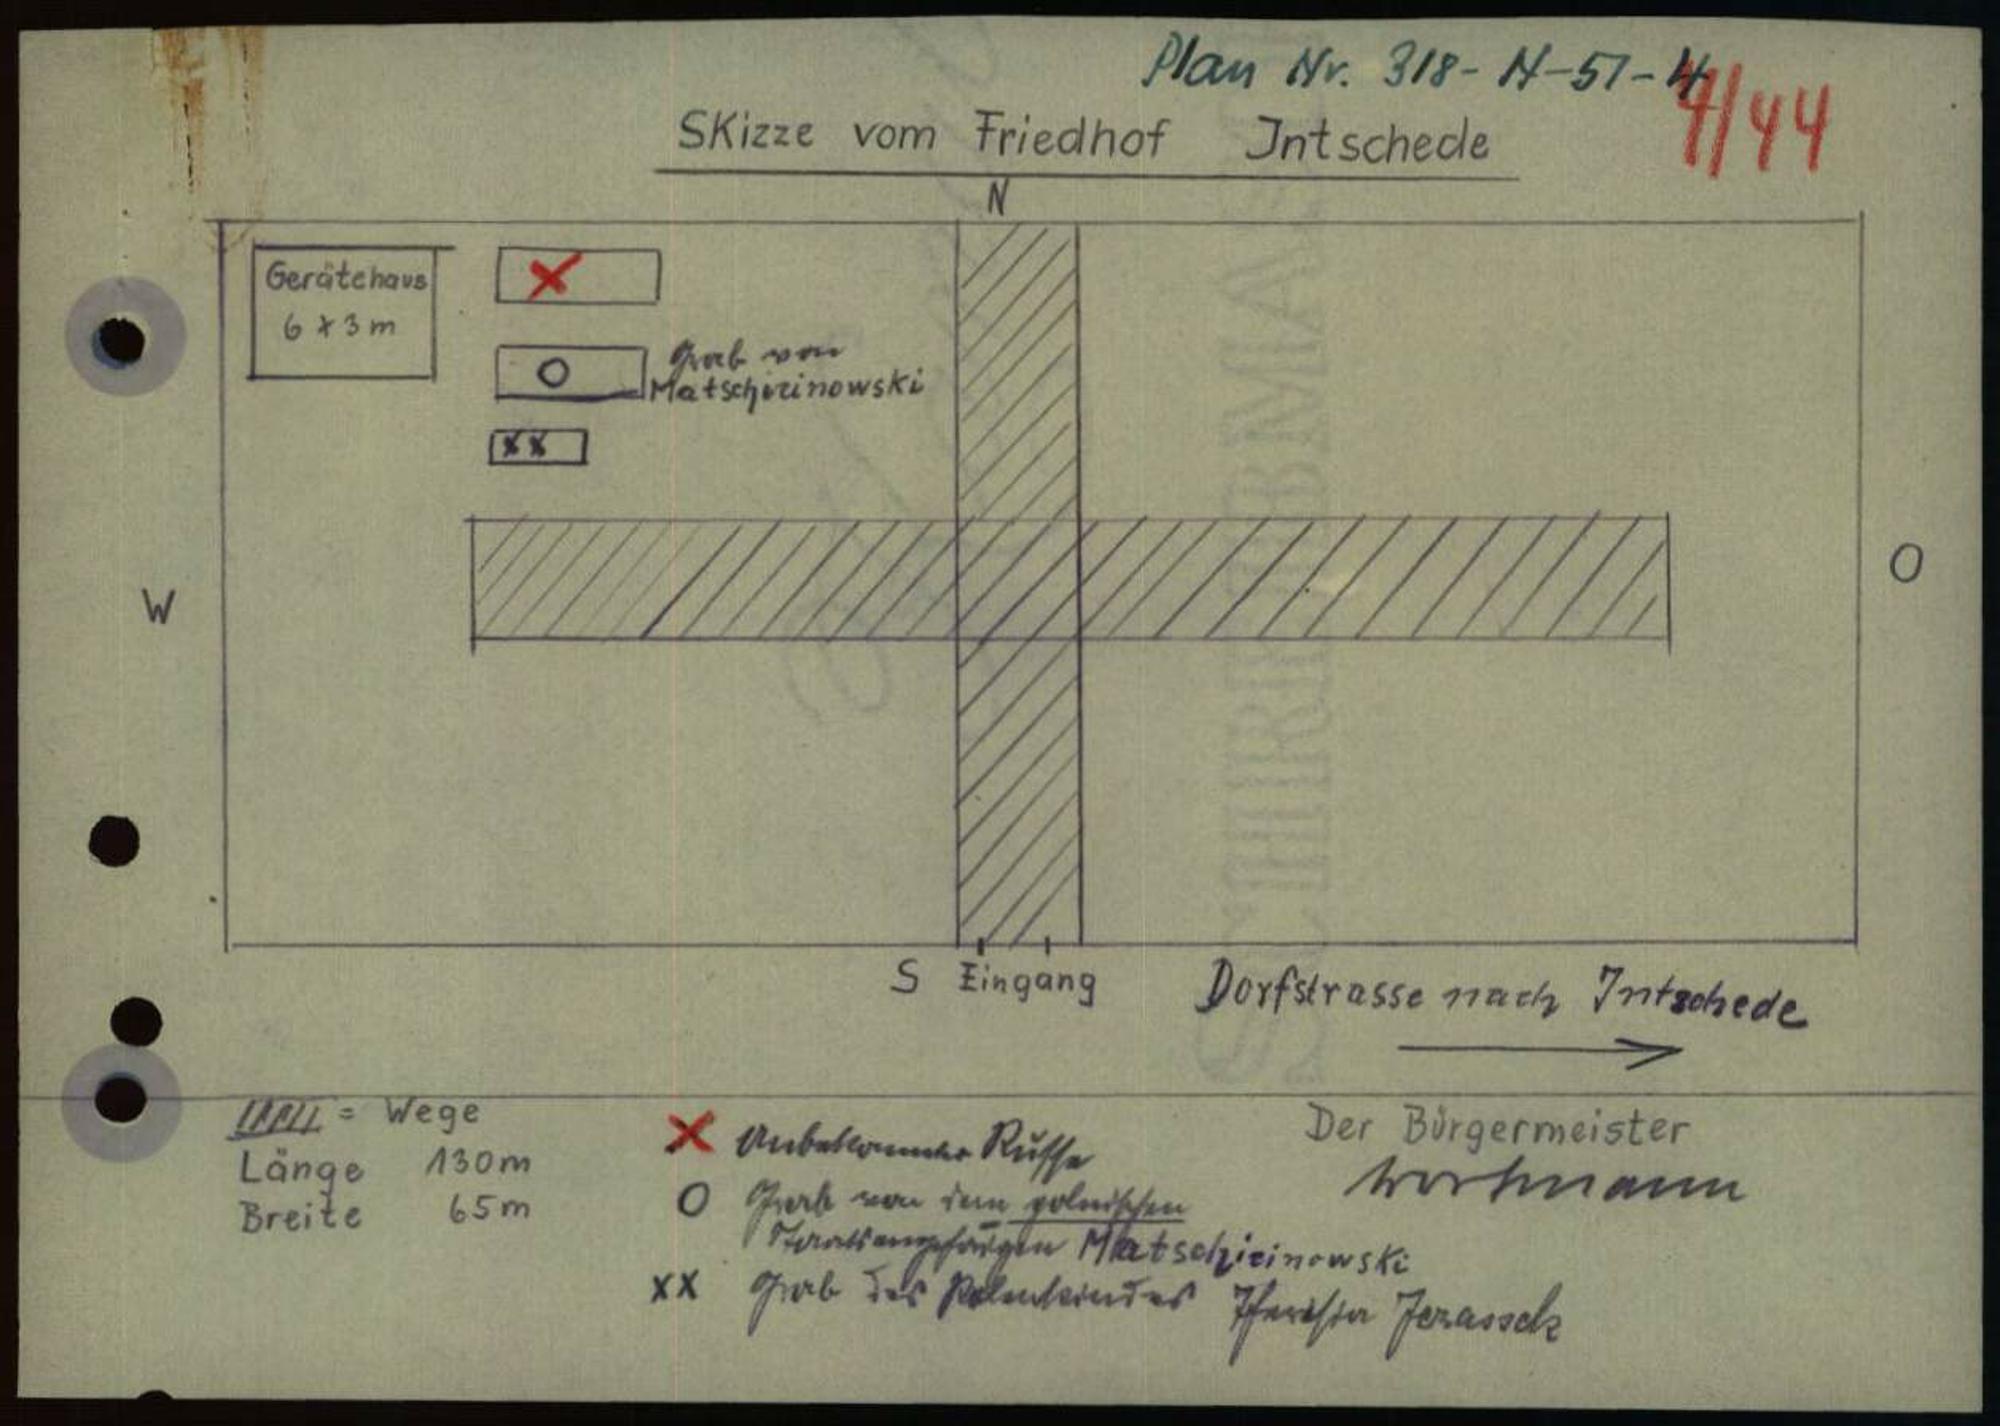 Plan Nr. 318-N-51-4
4/44
Skizze vom Friedhof Intschede
N
Gerätehaus
6 x 3 m
X
Grab von
O Matschizinowski
xx
W
O
S Eingang
Dorfstrasse nach Intschede
= Wege
Länge 130m
Breite 65m
X Unbekannter Russe
O Grab von dem polnischen
Staatsangehörigen Matschizinowski
xx Grab des Polenkindes Theresia Jerassek
Der Bürgermeister
Wortmann